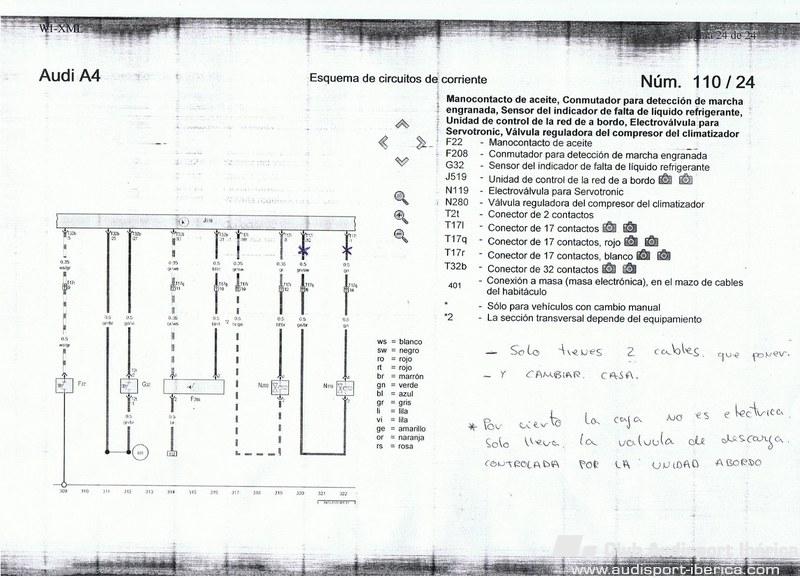 WI-XML
24 de 24
Audi A4
Esquema de circuitos de corriente
Núm. 110 / 24
Manocontacto de aceite, Conmutador para detección de marcha
engranada, Sensor del indicador de falta de líquido refrigerante,
Unidad de control de la red de a bordo, Electroválvula para
Servotronic, Válvula reguladora del compresor del climatizador
F22 - Manocontacto de aceite
F208 - Conmutador para detección de marcha engranada
G32 - Sensor del indicador de falta de líquido refrigerante
J519 - Unidad de control de la red de a bordo
N119 - Electroválvula para Servotronic
N280 - Válvula reguladora del compresor del climatizador
T2t - Conector de 2 contactos
T17l - Conector de 17 contactos
T17q - Conector de 17 contactos, rojo
T17r - Conector de 17 contactos, blanco
T32b - Conector de 32 contactos
401 - Conexión a masa (masa electrónica), en el mazo de cables
del habitáculo
* - Sólo para vehículos con cambio manual
*2 - La sección transversal depende del equipamiento
ws = blanco
sw = negro
ro = rojo
rt = rojo
br = marrón
gn = verde
bl = azul
gr = gris
li = lila
vi = lila
ge = amarillo
or = naranja
rs = rosa
- Solo tienes 2 cables que poner.
- Y CAMBIAR CASA.
* Por cierto la caja no es electrica.
solo lleva la valvula de descarga.
CONTROLADA POR LA UNIDAD ABORDO
309 310 311 312 313 314 315 316 317 318 319 320 321 322
Club Audisport Ibérica
www.audisport-iberica.com